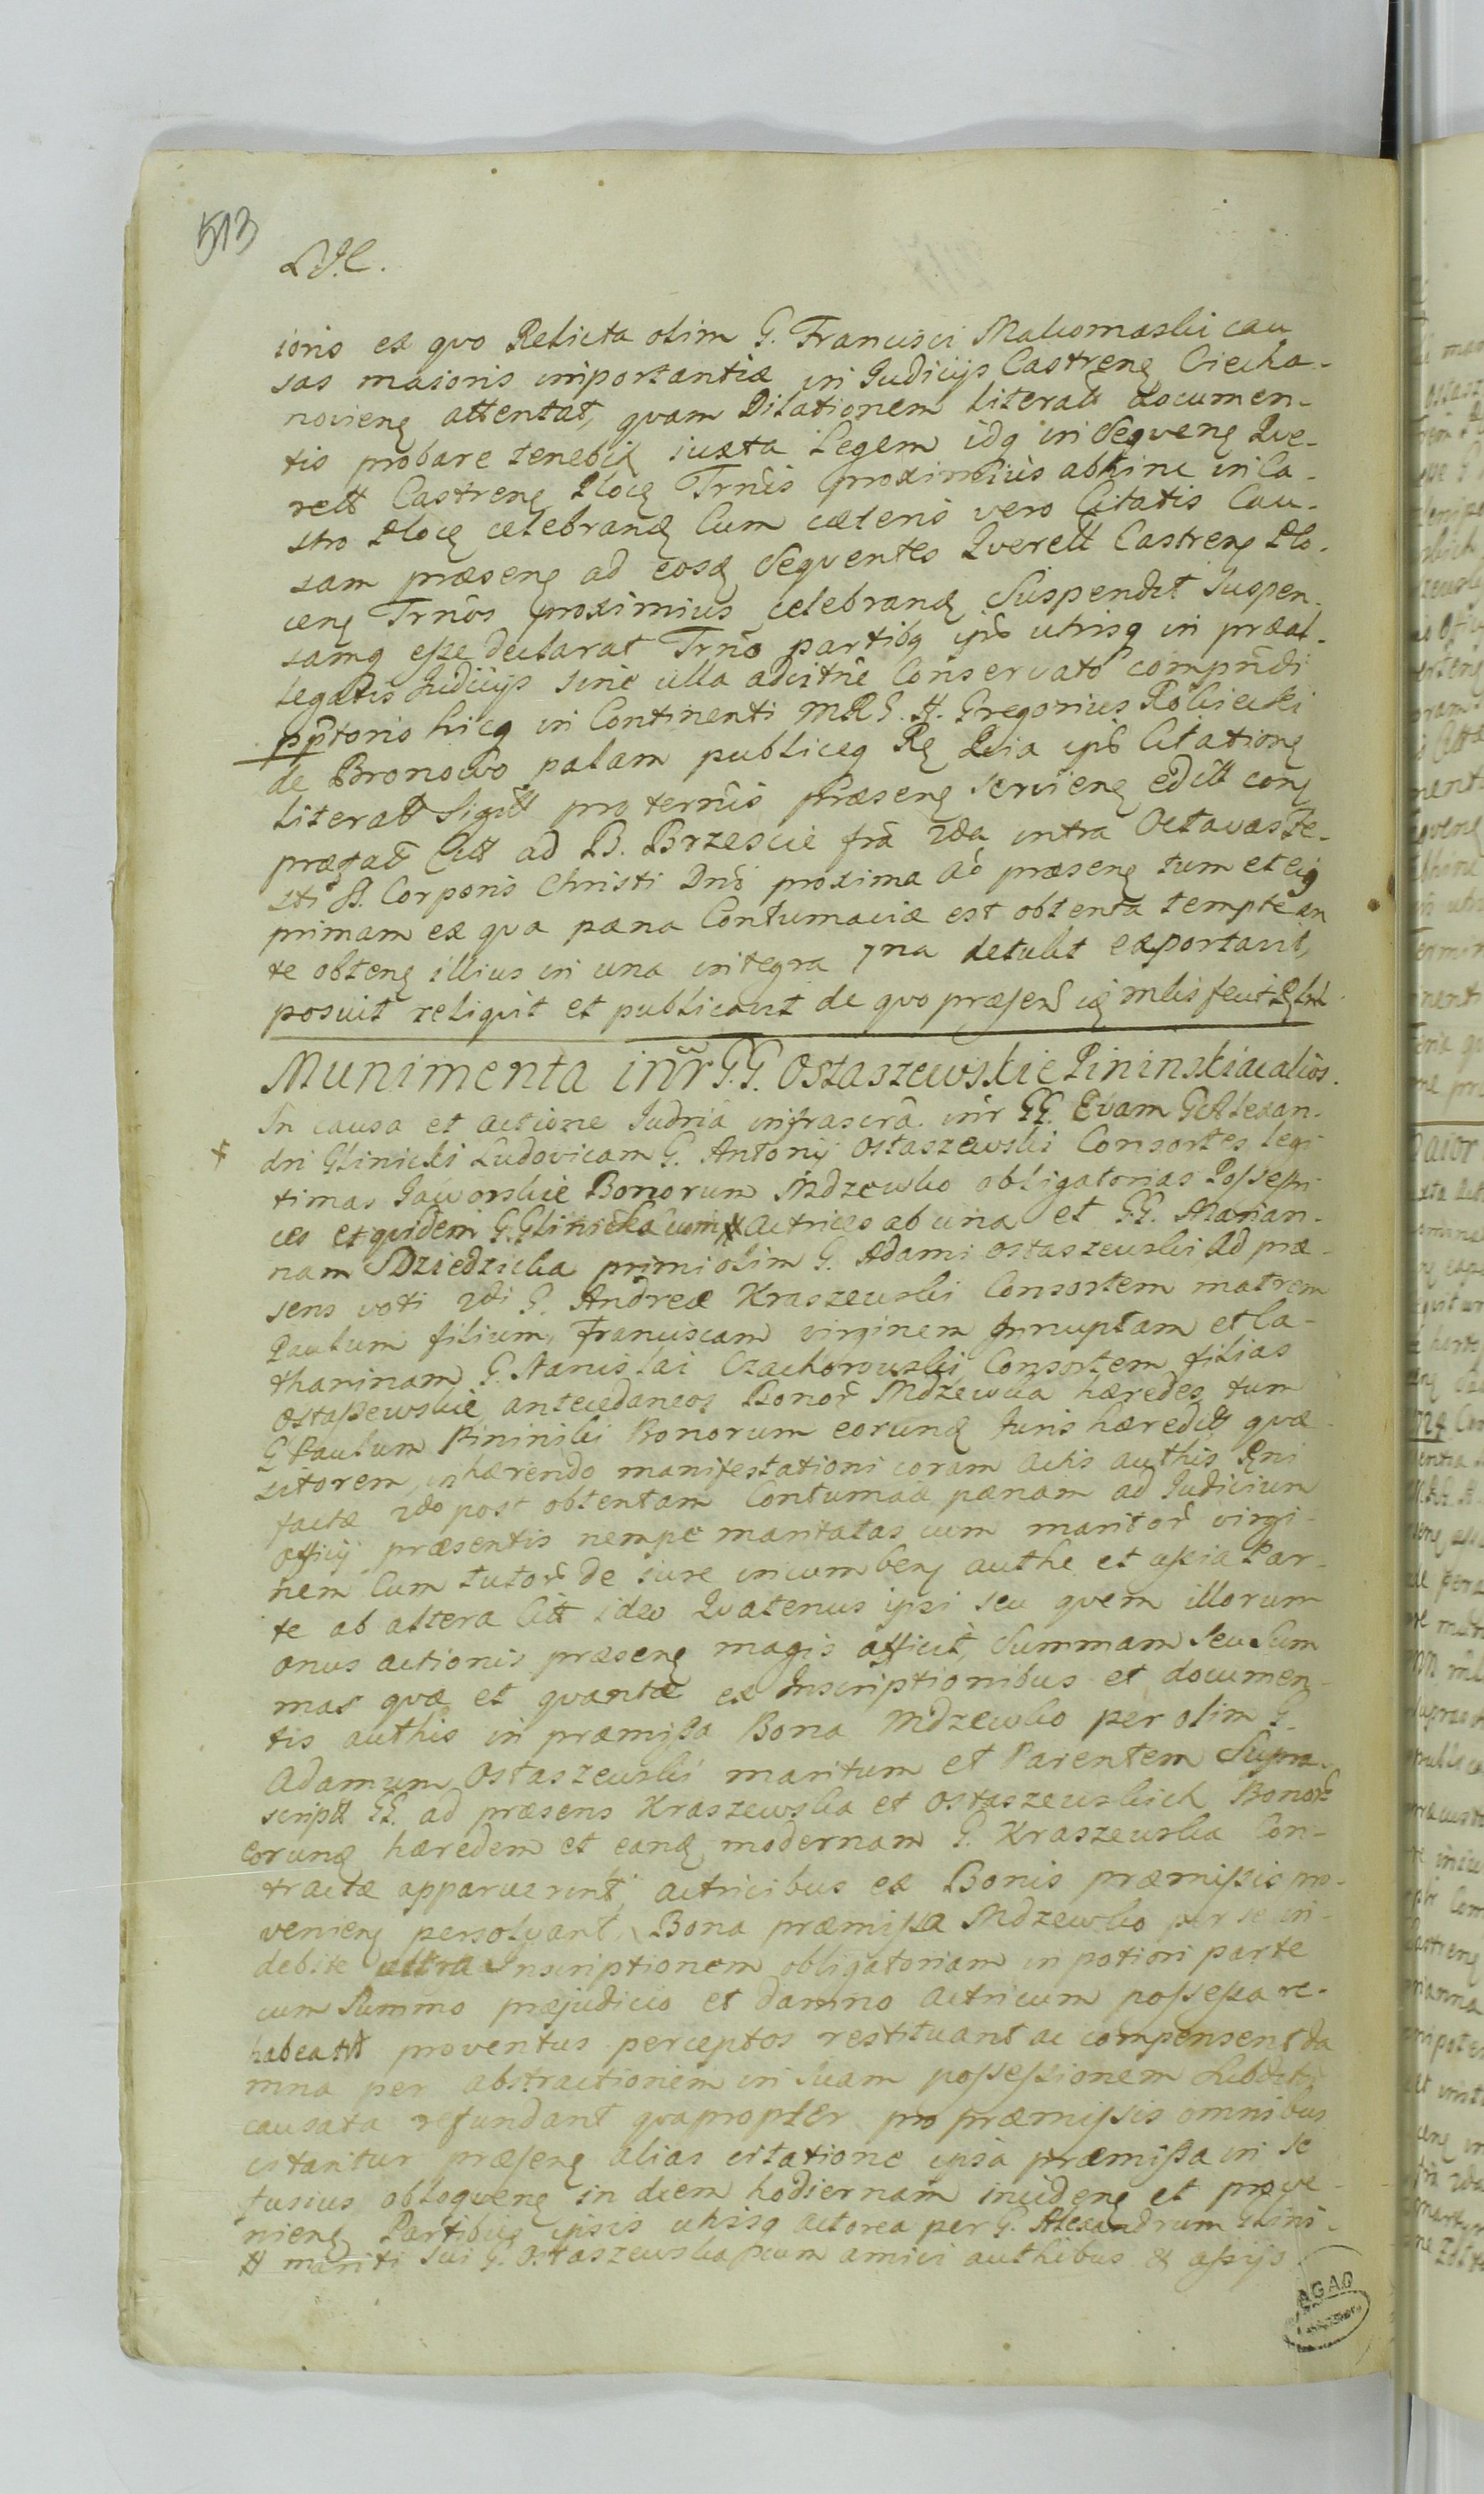 513
ioris ex quo Relicta olim G. Francisci Makomaski cau
sas maioris importantiæ in Judicijs Castren Ciecha-
novien attentat, quam Dilationem literatt documen-
tis probare tenebit iuxta Legem idq in sequen Que-
rell Castren Ploc Trnis proximius abhinc in Ca-
stro Ploc celebrand Cum cæteris vero Citatis Cau-
sam præsen ad eosd sequentes Querell Castren Plo-
cen Trnos proximius celebrand Suspendit suspen-
samq esse declarat Trno partibq ipis utrisq in præal-
legatis Judicijs sine ulla adcitne Conservato comprndi
pptoris hicq in Continenti MRG. S. Gregorius Robiecki
de Bronowo palam publiceq Rg Quia ipse Citatione
literatt Sigill pro ternis præsen servien editt con
præfatt Citt ad B. Brzescie fra 2da intra Octavas Fe-
sti S. Corporis Christi Dni proxima ad præsen tum et eiq
primam ex qua pæna Contumaciæ est obtenta tempte an
te obten illius in una integra 7na detulit exportavit,
posuit reliquit et publicavit de quo præsen
Munimenta inr G.G. Ostaszewskie Pininski ac alios.
In causa et actione Judria infrascra inr GG. Evam G Alexan-
dri Glinicki Ludovicam G. Antonij Ostaszewski Consortes legi
timas Jaworskie Bonorum Mdzewko obligatorias Possessri
ces et quidem G. Glinicka cum actrices ab una et GG. Marian-
nam Dziedzicka primi olim G. Adami Ostaszewski ad præ-
sens voti 2di G. Andreæ Kraszewski Consortem matrem
Paulum filium, Franciscam virginem Innuptam et Ca-
tharinam G. Stanislai Czachorowski Consortem filias
Ostaszewskie antecedaneos Bonor Mdzewka hæredes tum
G Paulum Pininski Bonorum eorund Juris hæredit quæ-
sitorem, inhærendo manifestationi coram Actis authis Rni
factæ 2do post obtentam Contumaciæ pænam ad Judicium
Officij præsentis nempe maritatas cum maritor virgi-
nem Cum tutor de iure incumben authe et assia Par-
te ab altera Citt ideo Quatenus ipsi seu quem illorum
onus actionis præsen magis afficit, Summam seu Sum
mas quæ et quantæ ex Inscriptionibus et documen-
tis authis in præmissa Bona Mdzewko per olim G.
Adamum Ostaszewski maritum et Parentem Supra-
script GG. ad præsens Kraszewska et Ostaszewskich Bonor
eorund hæredem et eand modernam G. Kraszewska Con-
tractæ apparuerint, actricibus ex Bonis præmissis pro-
venien persolvant, Bona præmissa Mdzewko per se in-
debite ultra Inscriptionem obligatoriam in potiori parte
cum Summo præjudicio et damno actricum possessa re-
habeatt proventus perceptos restituant ac compensent da
mna per abstractionem in suam possessionem Subdit
causata refundant quapropter pro præmissis omnibus
citantur præsen alias citatione ipsa præmissa in se
fusius obloquen in diem hodiernam inciden et prove-
nien Partibus ipsis utrisq actorea per G. Alexandrum Glini-
mariti sui G. Ostaszewska per eum amici authibus & assijs
AGAD